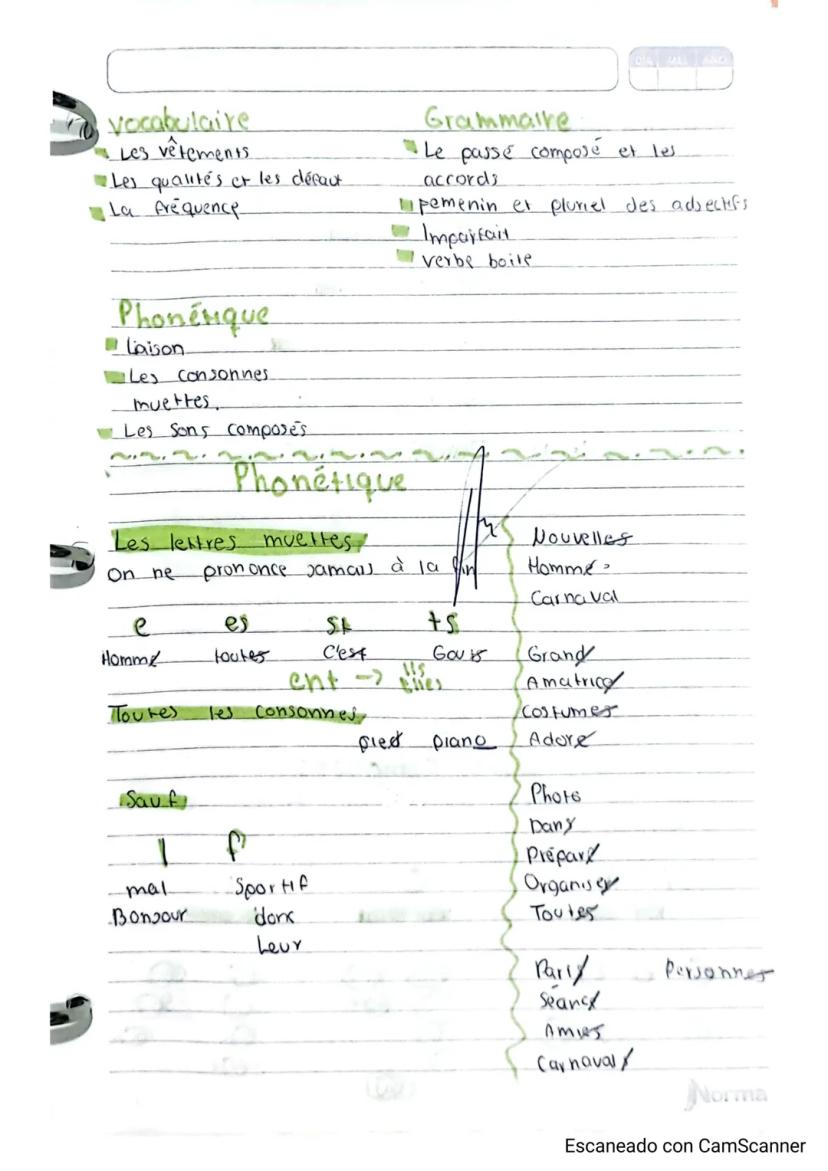 DÍA MES AÑO
Vocabulaire
Les vêtements
Les qualités et les défaut
La fréquence
Grammaire
Le passé composé et les
accords
Femenin et pluriel des adjectifs
Imparfait
verbe boite
Phonétique
Liaison
Les consonnes
muettes.
Les Sons composés
Phonétique
Les lettres muettes
On ne prononce jamais à la fin
e es st ts
Homme toutes C'est Gouts
ent -> ils
elles
Toutes les consonnes
pied piano
Sauf
l f
mal Sportif
Bonjour donc
Leur
Nouvelles
Homme
Carnaval
Grand
Amatrice
Costumes
Adore
Photo
Dans
Organiser
Toutes
Paris Personnes
Séance
Amies
Carnavals
Norma
Escaneado con CamScanner